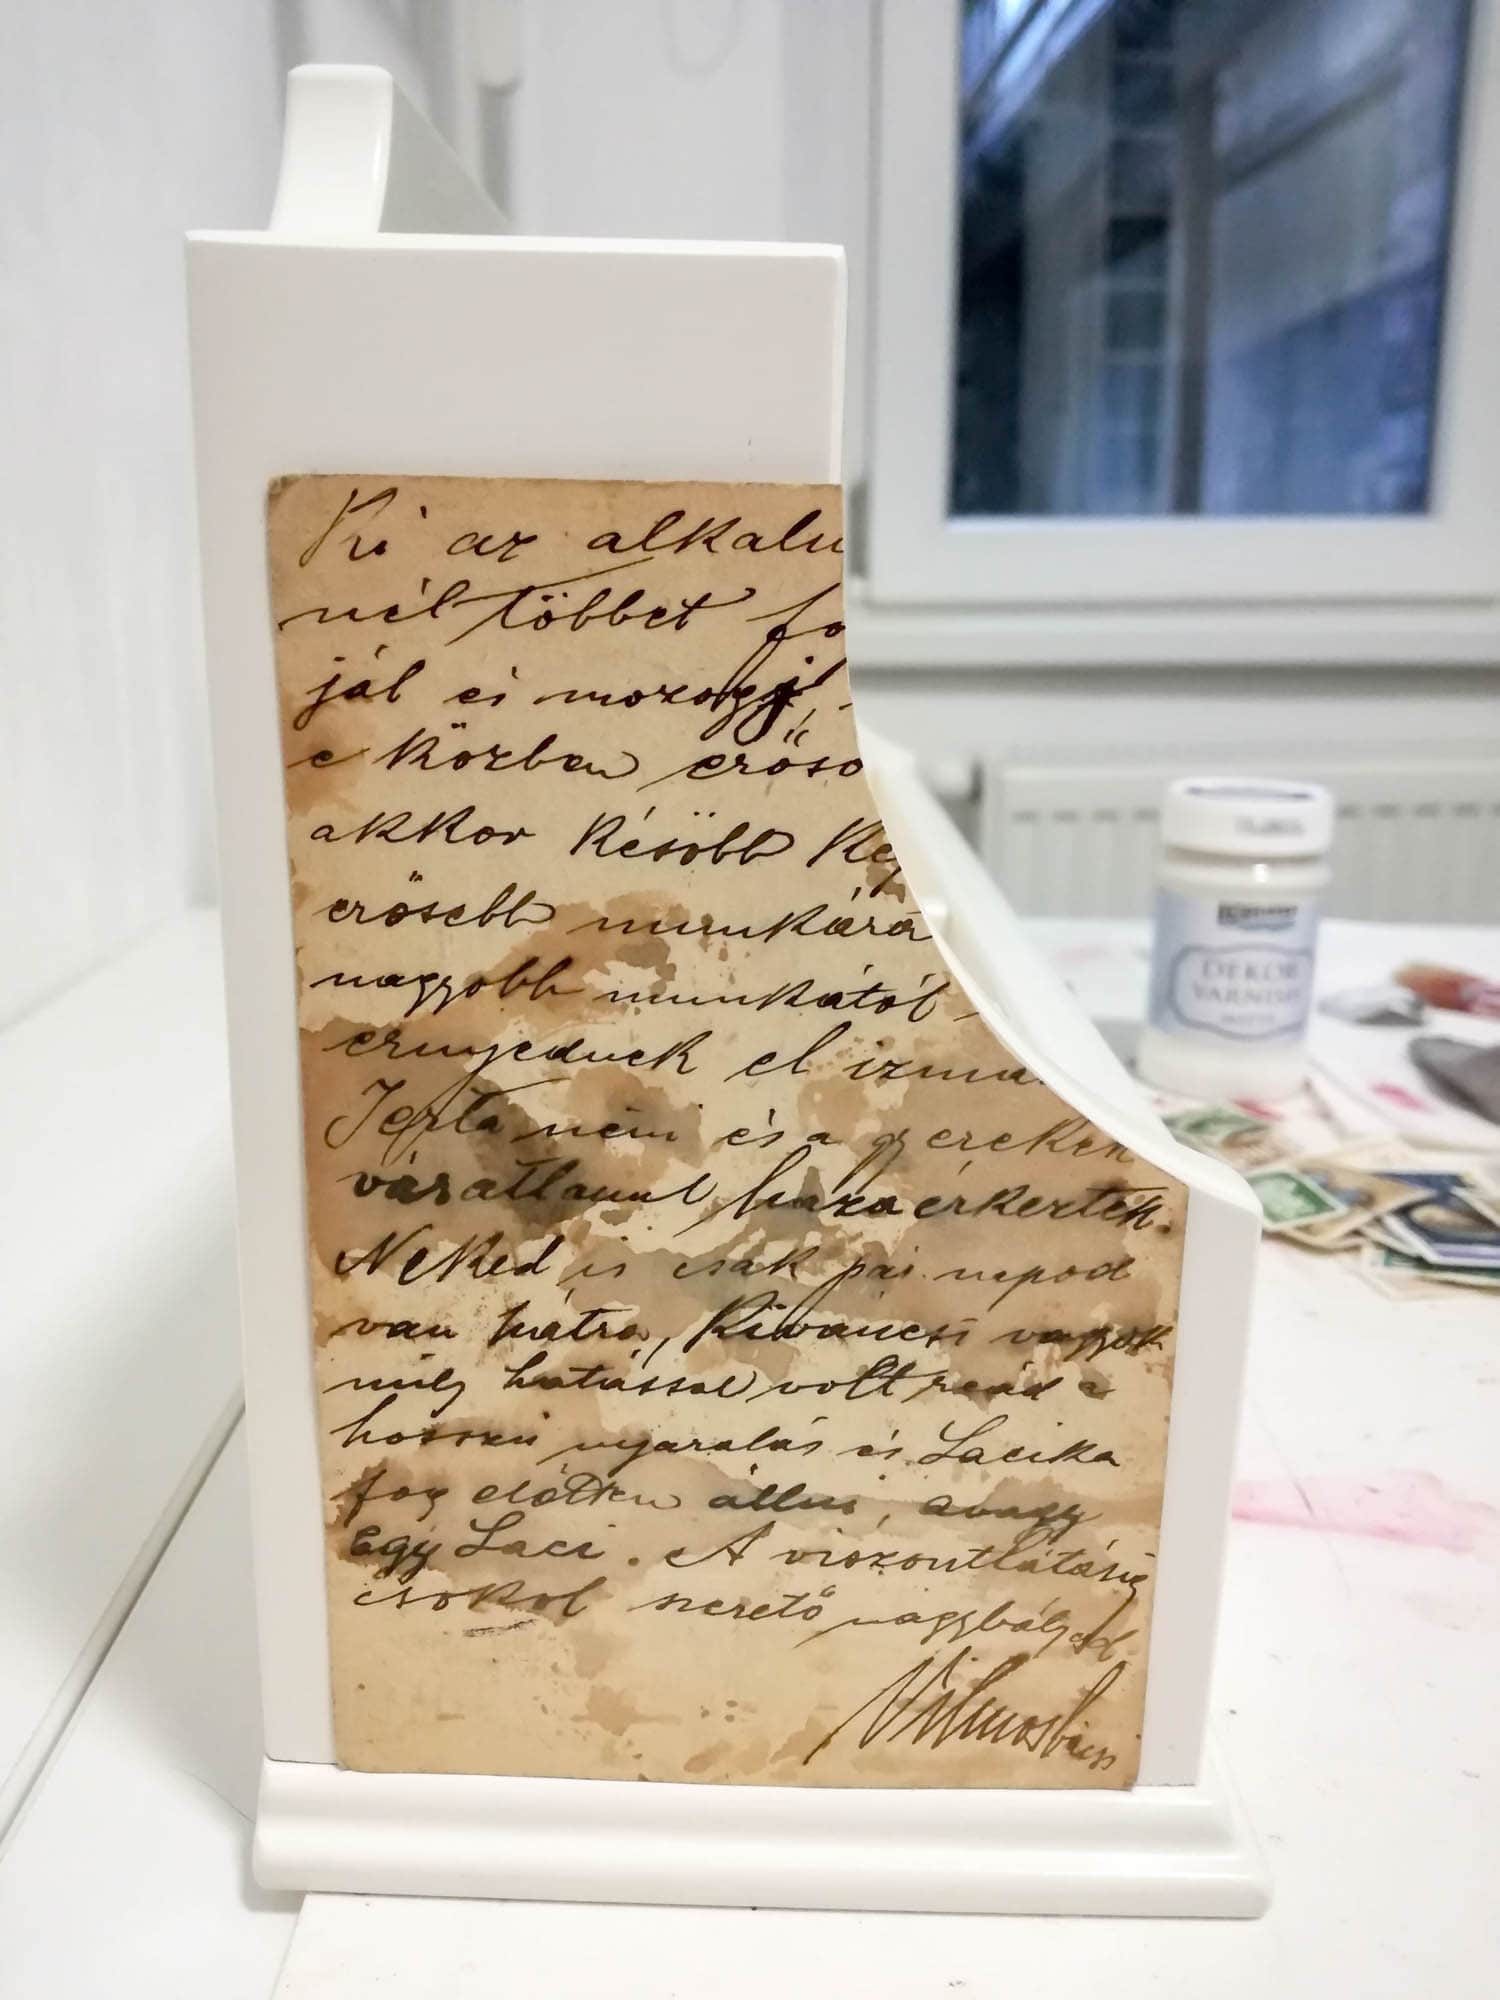 Ki az alkalm
nél többet fo
jál és mozogj,
e közben erősö
akkor később kép
erősebb munkára
nagyobb munkától
ernyednek el izma
Jerta néni és a gyerekek
váratlanul haza érkeztek.
Neked is csak pár napod
van hátra, Kiváncsi vagyok
mily hatással volt reád a
hosszú nyaralás és Lacika
fog előttem állni, avagy
egy Laci. A viszontlátásig
csokol szerető nagybátyád
Vilmos bácsi
DEKOR
VARNISH